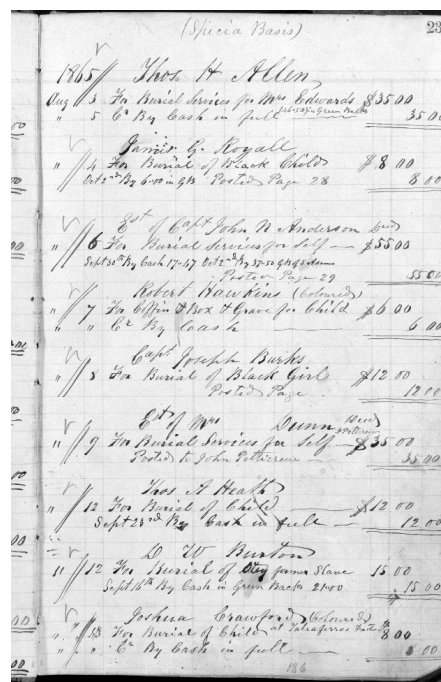 (Specia Basis) 23
1865 Thos H Allen
Aug 3 For Burial Services for Mrs Edwards $35 00
" 5 Cr By Cash in full (46-50) in Green Backs 35 00
James G. Royall
" 4 For Burial of Black Child $8 00
Oct 2nd By 6-00 in GB Posted Page 28 8 00
Est of Capt John N Anderson Decd
" 6 For Burial Services for Self $55 00
Sept 30th By Cash 17-47 Oct 2nd By 37-50
Posted Page 29 55 00
Robert Hawkins (Coloured)
" 7 For Coffin & Box & Grave for Child $6 00
" " Cr By Cash 6 00
Capt Joseph Burks
" 8 For Burial of Black Girl $12 00
Posted Page 12 00
Est of Mrs Dunn Decd
" 9 For Burial Services for Self $35 00
Posted to John Pettierew 35 00
Thos A Heath
" 12 For Burial of Child $12 00
Sept 23rd By Cash in full 12 00
D W Burton
" 12 For Burial of former Slave 15 00
Sept 16th By Cash in Green Backs 21-00 15 00
Joshua Crawford (Coloured)
" 13 For Burial of Child at Taliaferros $8 00
" " Cr By Cash in full 8 00
186